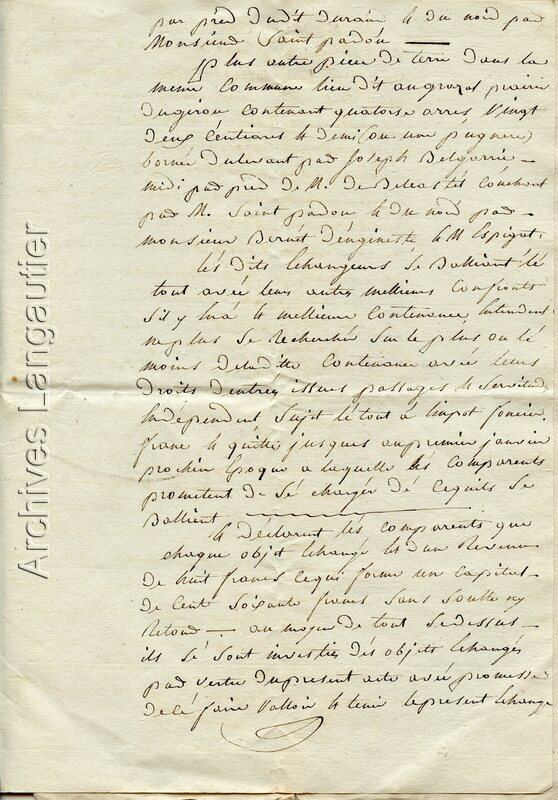 par pred dudit durain & du nord par
Monsieur Saint padou
plus autre piece de terre dans la
meme Commune lieu dit augrazas prairie
dugirou contenant quatorse arres, Vingt
deux Centiares & demi (ou une pugnere)
bornée dulevant par Joseph Delgarric
midi par pred de M. de Belcastel couchant
par M. Saint padou & du nord par
monsieur Bernet d'engineste & M Espigat.
Les dits Echangeurs se Ballient le
tout avec leurs autres mellieurs Confronts
S'il y en a & mellieur Contenance Entendent
ne plus se Rechercher Sur le plus ou le
moins deladitte Contenance avec leurs
Droits d'entrées issues passages & Servitudes
Independent Sujet le tout à limpot foncier
franc & quitte jusques aupremier janvier
prochin Epoque a laquelle les Comparents
promettent de Se charger de cequils se
Ballient
& declarent les comparents que
chaque objet Echangé Est d'un Revenu
de huit francs cequi forme un Capital
de Cent Soixante francs Sans Soulte ny
Retour au moyen de tout Sedessus
ils Se Sont investies des objets Echangés
par vertu dupresent acte avec promesse
de le faire Valloir & tenir lepresent Echange
Archives Langautier